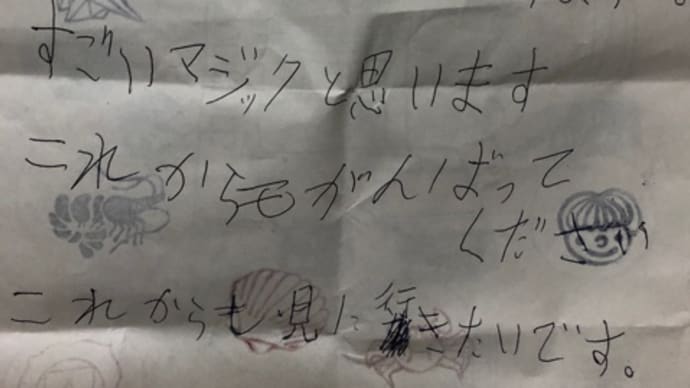 すごいマジックと思います
これからもがんばって
ください
これからも見に行きたいです。